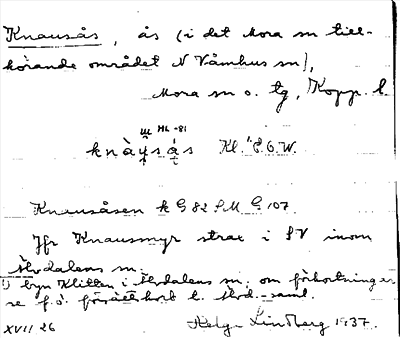 Knausås, ås (i det Mora sn till-
hörande området N Våmhus sn),
Mora sn o. tg, Kopp. l.
ML -81
knàu̯sás Kl.¹) E.O.W.
Knausåsen k G 82 SM G. 107.
Jfr Knausmyr strax i SV inom
Älvdalens sn.
1) byn Klitten i Älvdalens sn; om förkortningen
se f.ö. försättskort t. Älvd.-saml.
XVII 26 Helge Lindberg 1937.